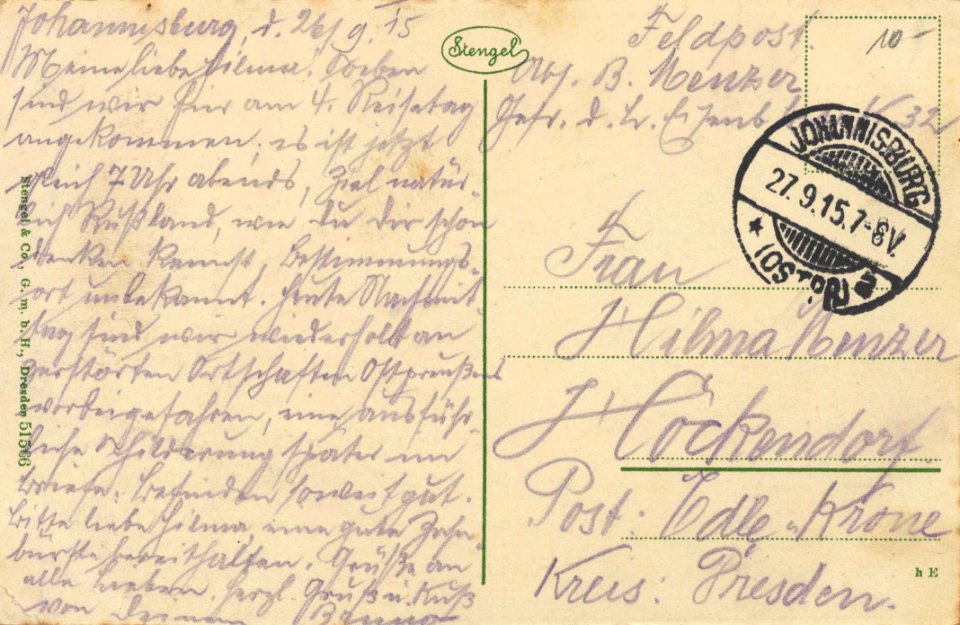 Johannisburg, d. 26/9.15
Meine liebe Hilma. Soeben
sind wir hier am 4. Reisetag
angekommen, es ist jetzt
gleich 7 Uhr abends, Ziel natür-
lich Rußland, wie du dir schon
denken kannst, Bestimmungs-
ort unbekannt. Heute Nachmit
tag sind wir wiederholt an
zerstörten Ortschaften Ostpreußens
vorbeigefahren, eine ausführ-
liche Schilderung später im
Briefe. Befinden soweit gut.
Bitte liebe Hilma, eine gute Zahn-
bürste bereithalten. Grüße an
alle Lieben. Herzl. Gruß u. Kuß
von Deinem Bruno
Stengel
Stengel & Co., G. m. b. H., Dresden 51566
Feldpost.
Abs. B. Menzer
Gefr. d. L.
32
10-
JOHANNISBURG
27.9.15.7-8V.
* (OSTPR) a
Frau
Hilma Menzer
Höckendorf.
Post: Edle-Krone
Kreis: Dresden.
h E